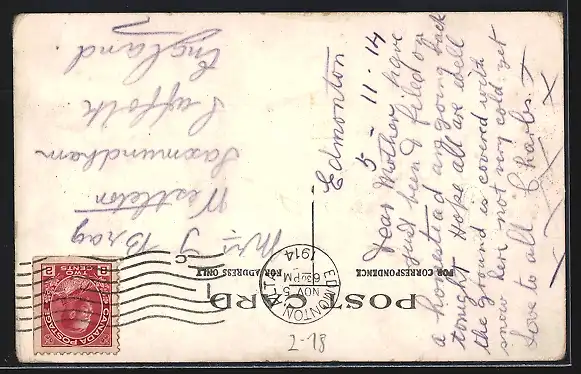 POST CARD
FOR CORRESPONDENCE
FOR ADDRESS ONLY
Edmonton
5 - 11 - 14
Dear Mother have
just been & filed on
a homestead and going back
tonight Hope all are well
the ground is covered with
snow here not very cold yet
love to all Charles
X X X
Mrs J Brag
Westleton
Saxmundham
Suffolk
England.
EDMONTON ALTA
6 30 PM
NOV 5
1914
CANADA POSTAGE
2 2
TWO CENTS
2-18